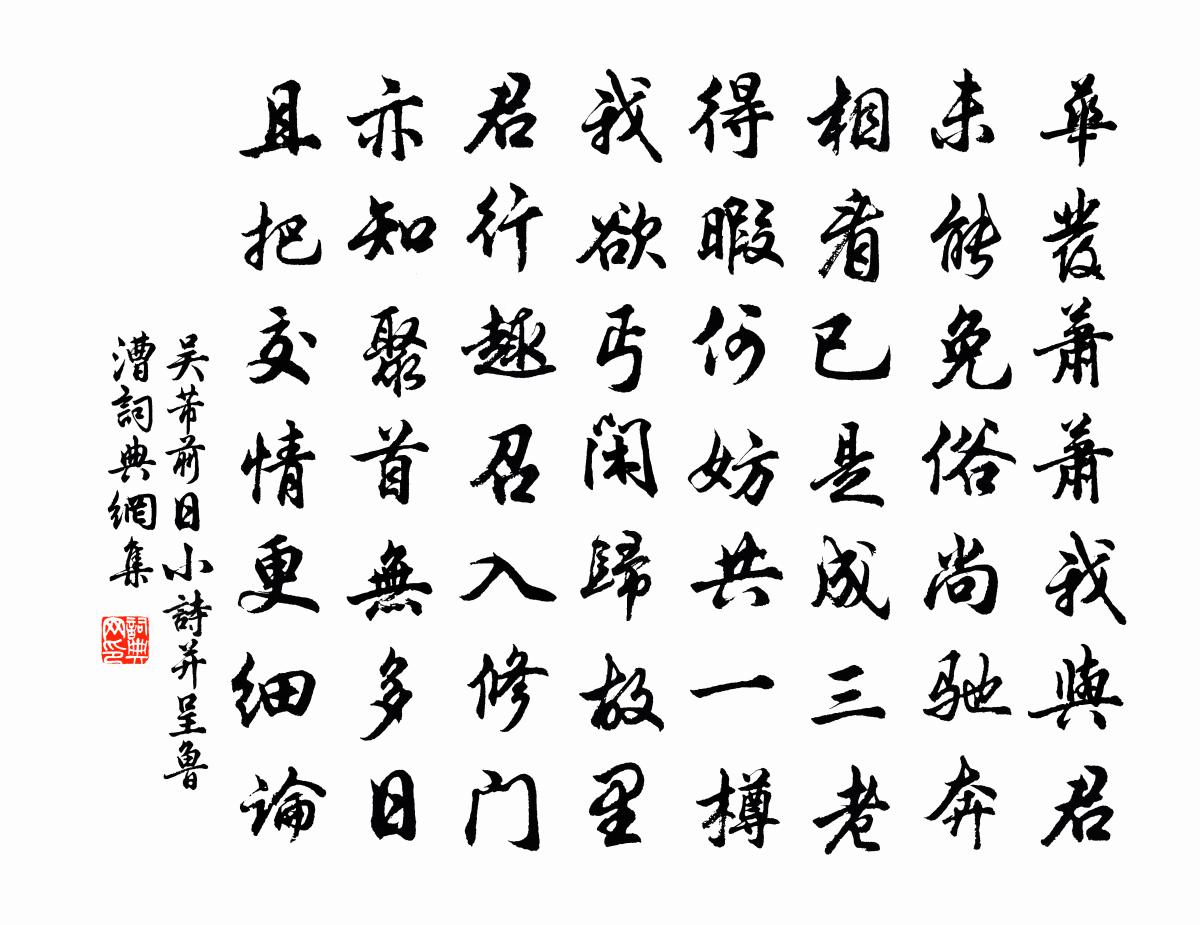 華發蕭蕭我與君
未能免俗尚馳奔
相看已是成三老
得暇何妨共一樽
我欲丐閑歸故里
君行趣召入修门
亦知聚首無多日
且把交情更細論
吳芾前日小詩并呈魯
漕詞典網集
詞典网印